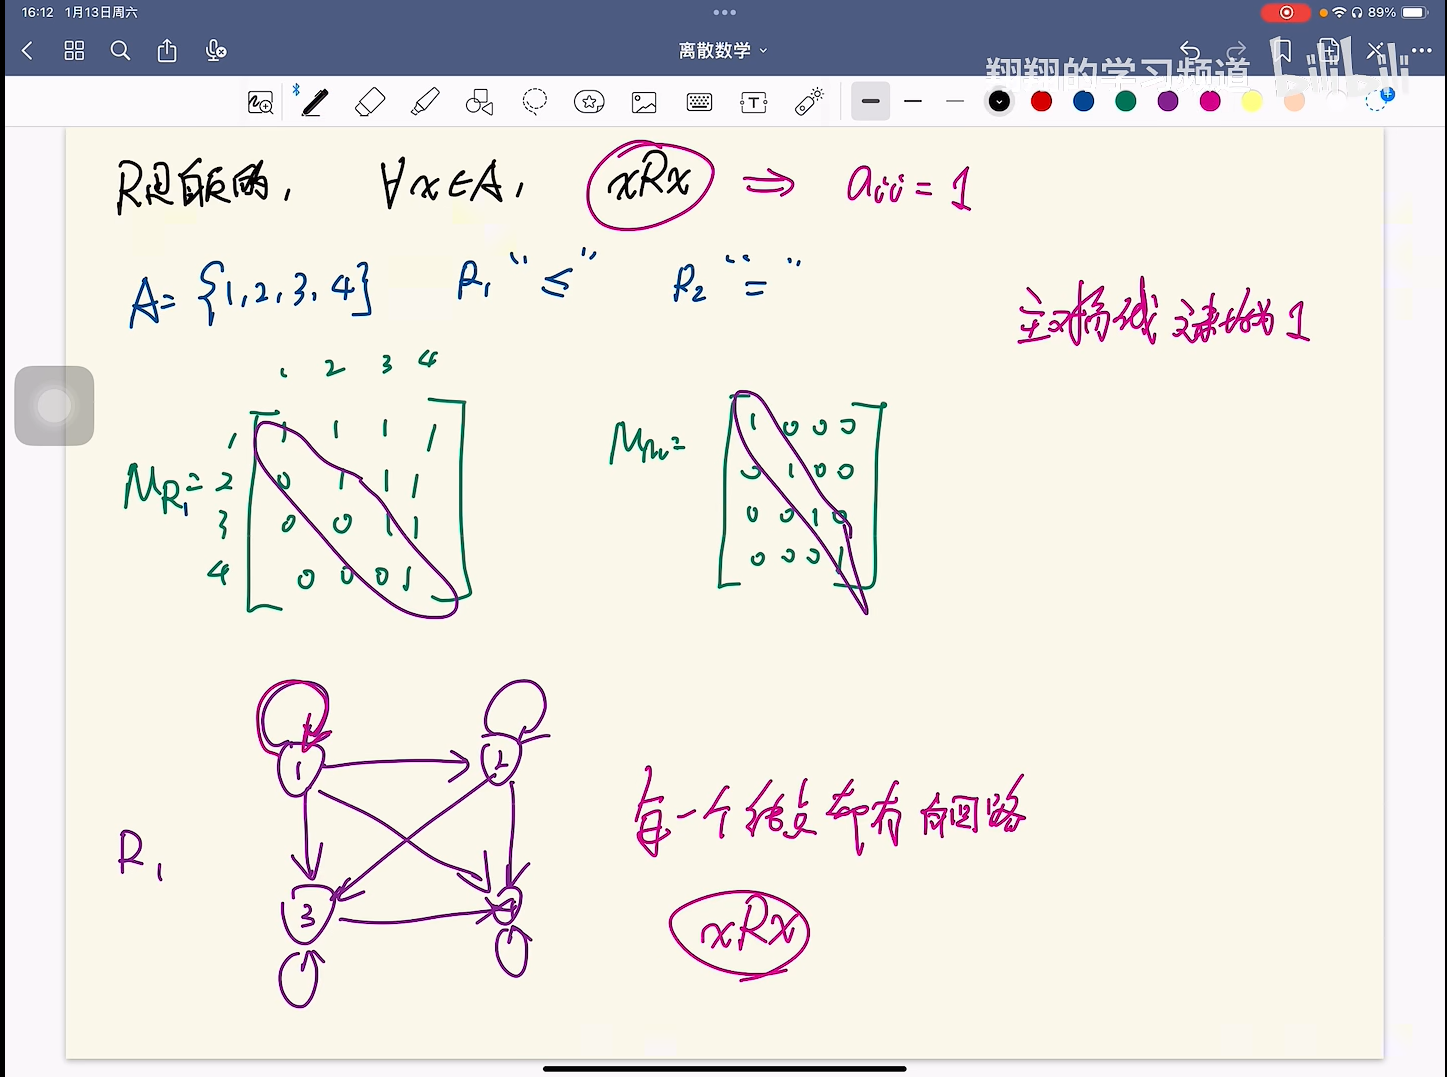 16:12 1月13日周六
89%
离散数学
翔翔的学习频道 bilibili
R是自反的, ∀x∈A, xRx ⇒ aii = 1
A= {1,2,3,4} R1 "≤" R2 "="
主对角线元素均为1
1 2 3 4
MR1=
1 1 1 1 1
2 0 1 1 1
3 0 0 1 1
4 0 0 0 1
MR2=
1 0 0 0
0 1 0 0
0 0 1 0
0 0 0 1
1 2
每一个结点都有自回路
R1
3 4
xRx